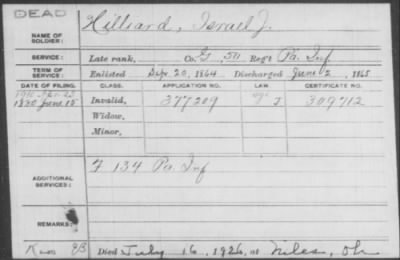 DEAD
NAME OF SOLDIER: Hilliard, Israel J.
SERVICE: Late rank, Co. G, 50 Reg't Pa. Inf
TERM OF SERVICE: Enlisted Sept. 20, 1864 Discharged June 2, 1865
DATE OF FILING. CLASS. APPLICATION NO. LAW CERTIFICATE NO.
1880 June 15 Invalid, 377209 J 309712
Widow,
Minor,
ADDITIONAL SERVICES: F 134 Pa. Inf
REMARKS:
Died July 16, 1926, at Niles, Oh